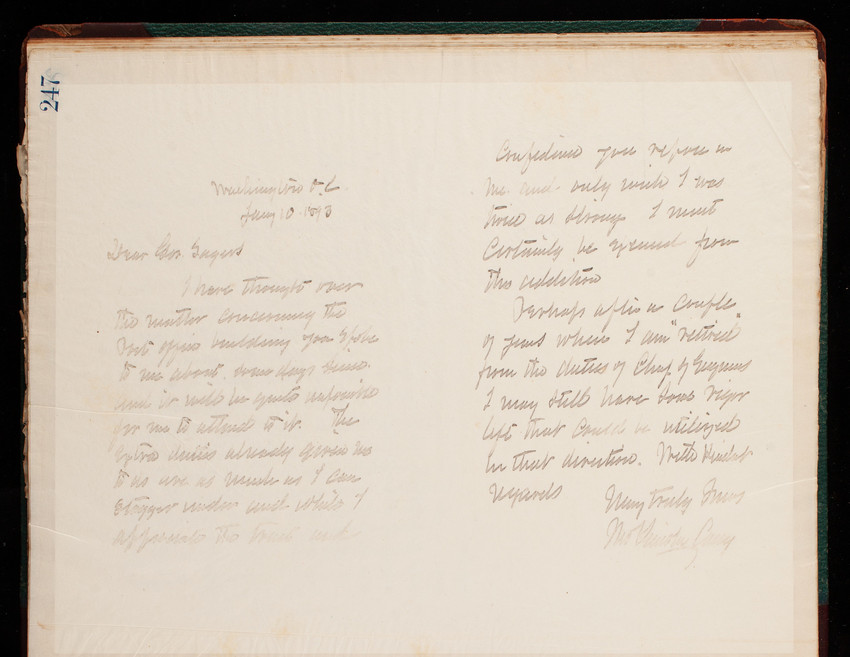 247
Washington D.C.
Jany 10 1893
Dear Gov.
I have thought over
the matter concerning the
Post office building you spoke
to me about some days since.
and it will be quite impossible
for me to attend to it. The
Extra duties already given me
are as much as I can
stagger under and while I
appreciate the trust and
Confidence you repose in
me and only wish I was
twice as strong I must
Certainly be excused from
this addition
Perhaps after a Couple
of years when I am "retired"
from the duties of Chief of Engineers
I may still have some vigor
left that could be utilized
in that direction. With kindest
regards
Very truly Yours
Thos Lincoln Casey